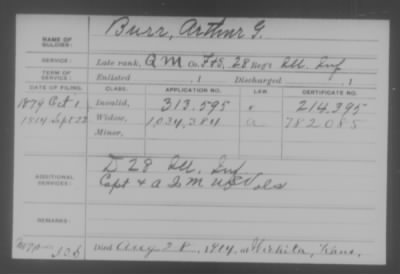 Burr, Arthur G.
NAME OF SOLDIER:
SERVICE: Late rank, Q M Co. F&S, 28 Reg't Ill. Inf
TERM OF SERVICE: Enlisted , 1 Discharged , 1
DATE OF FILING. CLASS. APPLICATION NO. LAW CERTIFICATE NO.
1879 Oct 1 Invalid, 313.595 214.395
1914 Sept 22 Widow, 1,034,384 a 782085
Minor,
ADDITIONAL SERVICES: D 28 Ill. Inf
Capt & a Q M US Vols
REMARKS:
Died Aug 28, 1914, at Wichita, Kans.